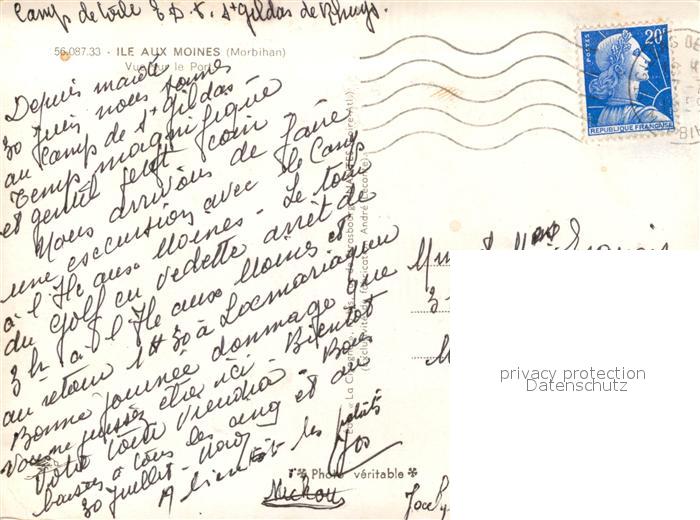 Camp de voile E D F St Gildas de Rhuys.
56.087.33 - ILE AUX MOINES (Morbihan)
Vue sur le Port
Depuis mardi
30 Juin nous sommes
au camp de St Gildas
Temps magnifique
et gentil petit coin
Nous arrivons de faire
une excursion avec le Camp
à l'Ile aux Moines - Le tour
du Golf en vedette arrêt de
3 h à l'Ile aux Moines et
au retour 1 H 30 à Locmariaquer
Bonne journée dommage que
vous ne puissiez être ici - Bientôt
votre tour viendra - Bons
baisers à tous les cinq et au
30 Juillet - 
A bientôt les petits
Jos
POSTES
20F
REPUBLIQUE FRANÇAISE
Mr et Mme
privacy protection
Datenschutz
Photo véritable